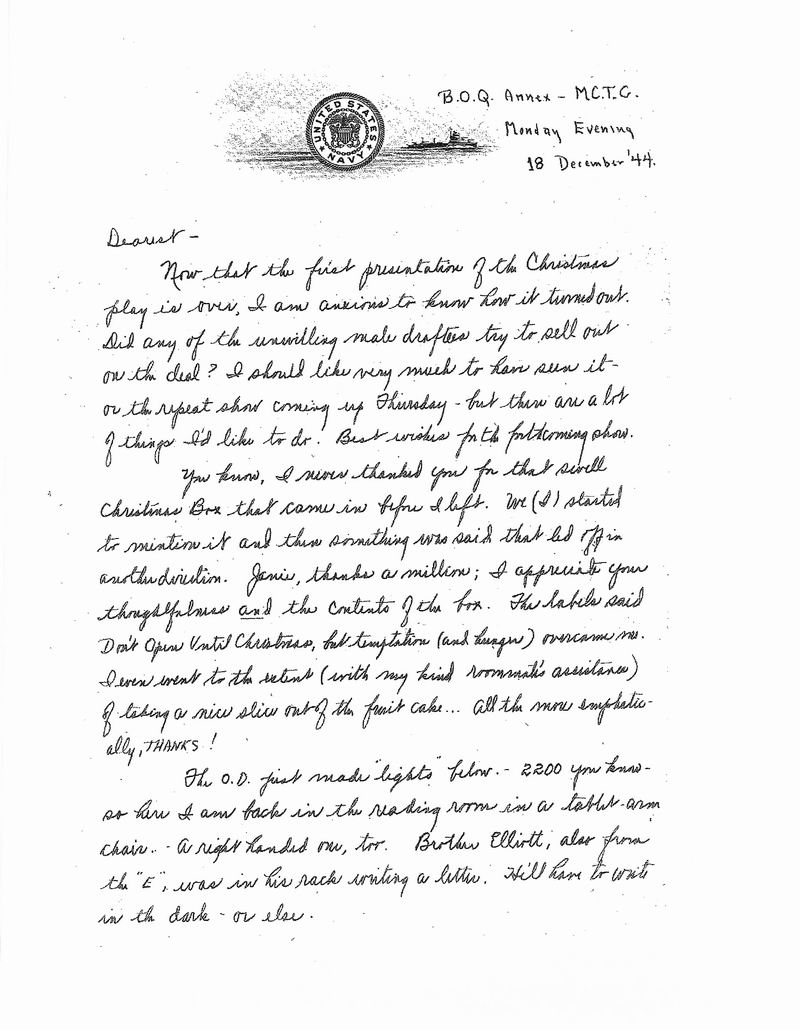 B.O.Q. Annex – M.C.T.C.
UNITED STATES NAVY
Monday Evening
18 December '44.
Dearest –
Now that the first presentation of the Christmas
play is over, I am anxious to know how it turned out.
Did any of the unwilling male draftees try to sell out
on the deal? I should like very much to have seen it –
or the repeat show coming up Thursday – but there are a lot
of things I'd like to do. Best wishes for the forthcoming show.
You know, I never thanked you for that swell
Christmas Box that came in before I left. We (I) started
to mention it and then something was said that led off in
another direction. Janie, thanks a million; I appreciate your
thoughtfulness and the contents of the box. The labels said
Don't Open Until Christmas, but temptation (and hunger) overcame me.
I even went to the extent (with my kind roommate's assistance)
of taking a nice slice out of the fruit cake... All the more emphatic-
ally, THANKS!
The O.D. just made "lights" below. – 2200 you know –
so here I am back in the reading room in a tablet-arm
chair. – A right handed one, too. Brother Elliott, also from
the "E", was in his rack writing a letter. He'll have to write
in the dark – or else.